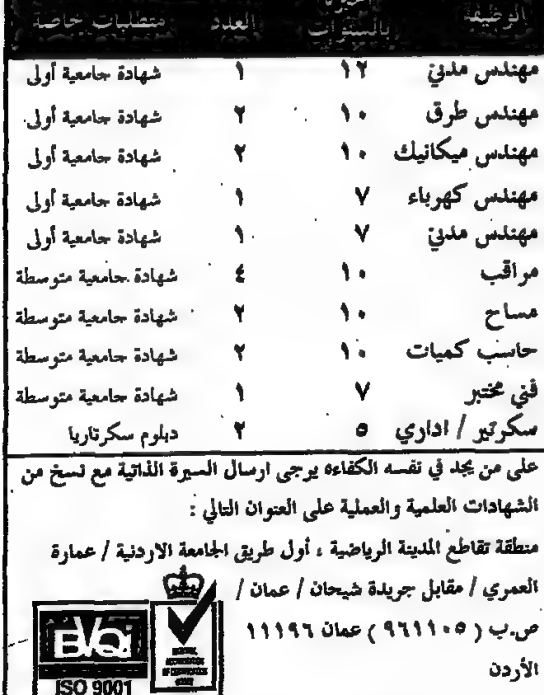 الوظيفة الخبرة بالسنوات العدد متطلبات خاصة
مهندس مدني ١٢ ١ شهادة جامعية أولى
مهندس طرق ١٠ ٢ شهادة جامعية أولى
مهندس ميكانيك ١٠ ٢ شهادة جامعية أولى
مهندس كهرباء ٧ ١ شهادة جامعية أولى
مهندس مدني ٧ ١ شهادة جامعية أولى
مراقب ١٠ ٤ شهادة جامعية متوسطة
مساح ١٠ ٢ شهادة جامعية متوسطة
حاسب كميات ١٠ ٢ شهادة جامعية متوسطة
فني مختبر ٧ ١ شهادة جامعية متوسطة
سكرتير / اداري ٥ ٢ دبلوم سكرتاريا
على من يجد في نفسه الكفاءه يرجى ارسال السيرة الذاتية مع نسخ من
الشهادات العلمية والعملية على العنوان التالي :
منطقة تقاطع المدينة الرياضية ، أول طريق الجامعة الاردنية / عمارة
العمري / مقابل جريدة شيحان / عمان /
ص.ب ( ٩٦١١٠٥ ) عمان ١١١٩٦
الأردن
BVQI
ISO 9001